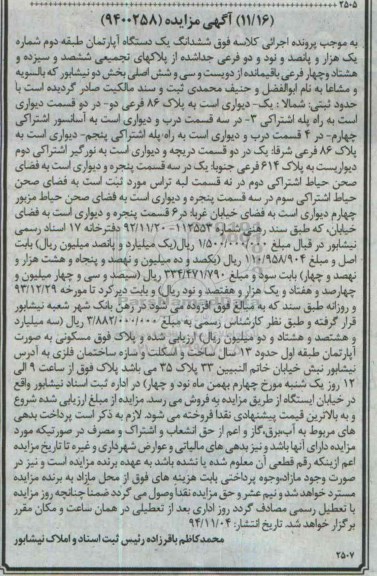 ۲۵۰۵
(۱۱/۱۶) آگهی مزایده (۹۴۰۰۲۵۸)
به موجب پرونده اجرائی کلاسه فوق ششدانگ یک دستگاه آپارتمان طبقه دوم شماره
یک هزار و پانصد و نود و دو فرعی جداشده از پلاکهای تجمیعی ششصد و سیزده و
هشتاد وچهار فرعی باقیمانده از دویست و سی و شش اصلی بخش دو نیشابور که بالسویه
و مشاعا به نام ابوالفضل و حنیف محمدی ثبت و سند مالکیت صادر گردیده است با
حدود ثبتی: شمالا : یک- دیواری است به پلاک ۸۶ فرعی دو- در دو قسمت دیواری
است به راه پله اشتراکی ۳- در سه قسمت درب و دیواری است به آسانسور اشتراکی
چهارم- در ۴ قسمت درب و دیواری است به راه پله اشتراکی پنجم- دیواری است به
پلاک ۸۶ فرعی شرقا: یک در دو قسمت دریچه و دیواری است به نورگیر اشتراکی دوم
دیواریست به پلاک ۶۱۴ فرعی جنوبا: یک در سه قسمت پنجره و دیواری است به فضای
صحن حیاط اشتراکی دوم در نه قسمت لبه تراس مورد ثبت است به فضای صحن
حیاط اشتراکی سوم در سه قسمت پنجره و دیواری است به فضای صحن حیاط مزبور
چهارم دیواری است به فضای خیابان غربا: در ۶ قسمت پنجره و دیواری است به فضای
خیابان، که طبق سند رهنی شماره ۱۱۲۵۵۳- ۹۲/۱۱/۲۰ دفترخانه ۱۷ اسناد رسمی
نیشابور در قبال مبلغ ۱/۵۰۰/۰۰۰/۰۰۰ ریال(یک میلیارد و پانصد میلیون ریال) بابت
اصل و مبلغ ۱۱۰/۹۵۸/۹۰۴ ریال (یکصد و ده میلیون و نهصد و پنجاه و هشت هزار و
نهصد و چهار) بابت سود و مبلغ ۳۳۴/۴۷۱/۷۹۰ ریال (سیصد و سی و چهار میلیون و
چهارصد و هفتاد و یک هزار و هفتصد و نود ریال) و بابت دیرکرد تا مورخه ۹۳/۱۲/۲۹
و روزانه طبق سند که به مبالغ فوق افزوده می شود در رهن بانک شهر شعبه نیشابور
قرار گرفته و طبق نظر کارشناس رسمی به مبلغ ۳/۸۸۲/۰۰۰/۰۰۰ ریال (سه میلیارد
و هشتصد و هشتاد و دو میلیون ریال) ارزیابی شده و پلاک فوق مسکونی به صورت
آپارتمان طبقه اول حدود ۱۳ سال ساخت و اسکلت و سازه ساختمان فلزی به آدرس
نیشابور نبش خیابان خاتم النبیین ۳۳ پلاک ۳۵ می باشد پلاک فوق از ساعت ۹ الی
۱۲ روز یک شنبه مورخ چهارم بهمن ماه نود و چهار) در اداره ثبت اسناد نیشابور واقع
در خیابان ایستگاه از طریق مزایده به فروش می رسد. مزایده از مبلغ ارزیابی شده شروع
و به بالاترین قیمت پیشنهادی نقدا فروخته می شود. لازم به ذکر است پرداخت بدهی
های مربوط به آب،برق،گاز و اعم از حق انشعاب و اشتراک و مصرف در صورتیکه مورد
مزایده دارای آنها باشد و نیز بدهی های مالیاتی و عوارض شهرداری و غیره تا تاریخ مزایده
اعم ازینکه رقم قطعی آن معلوم شده یا نشده باشد به عهده برنده مزایده است و نیز در
صورت وجود مازاد،وجوه پرداختی بابت هزینه های فوق از محل مازاد به برنده مزایده
مسترد خواهد شد و نیم عشر و حق مزایده نقدا وصول می گردد ضمناً چنانچه روز مزایده
با تعطیل رسمی مصادف گردد روز اداری بعد از تعطیلی در همان ساعت و مکان مقرر
برگزار خواهد شد. تاریخ انتشار: ۹۴/۱۱/۰۴
محمدکاظم باقرزاده رئیس ثبت اسناد و املاک نیشابور
۲۵۰۷